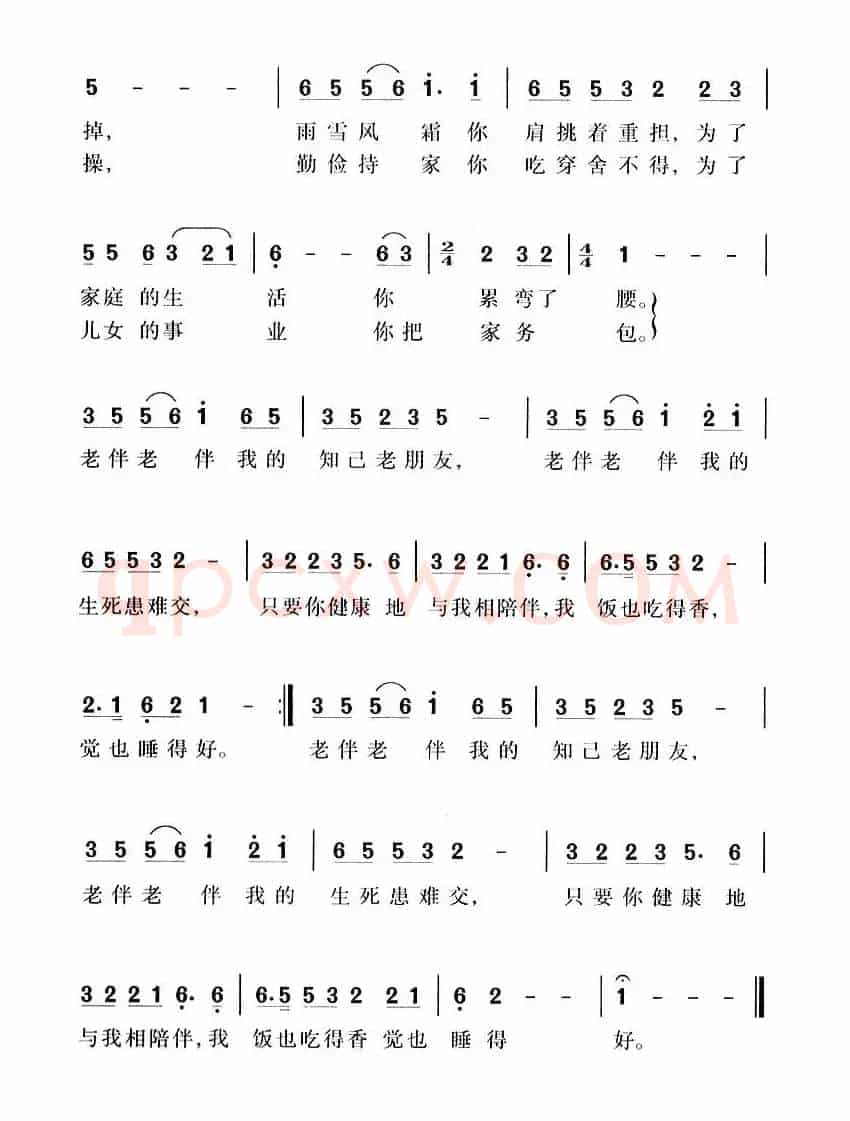 5 - - - | 6 5 5 6 i· i | 6 5 5 3 2 2 3 |
掉， 雨雪风 霜你 肩挑着重担，为了
操， 勤俭持 家你 吃穿舍不得，为了
5 5 6 3 2 1 | 6 - - 6 3 | 2/4 2 3 2 | 4/4 1 - - - |
家庭的生 活 你 累弯了 腰。
儿女的事 业 你把 家务 包。
3 5 5 6 i 6 5 | 3 5 2 3 5 - | 3 5 5 6 i 2 i |
老伴老 伴我的 知己老朋友， 老伴老 伴我的
6 5 5 3 2 - | 3 2 2 3 5· 6 | 3 2 2 1 6· 6 | 6·5 5 3 2 - |
生死患难交， 只要你健康地 与我相陪伴，我 饭也吃得香，
qpcxw.com
2·1 6 2 1 - :‖ 3 5 5 6 i 6 5 | 3 5 2 3 5 - |
觉也睡得好。 老伴老 伴我的 知己老朋友，
3 5 5 6 i 2 i | 6 5 5 3 2 - | 3 2 2 3 5· 6 |
老伴老 伴我的 生死患难交， 只要你健康地
3 2 2 1 6· 6 | 6·5 5 3 2 2 1 | 6 2 - - | 1 - - - ‖
与我相陪伴，我 饭也吃得香 觉也 睡 得 好。